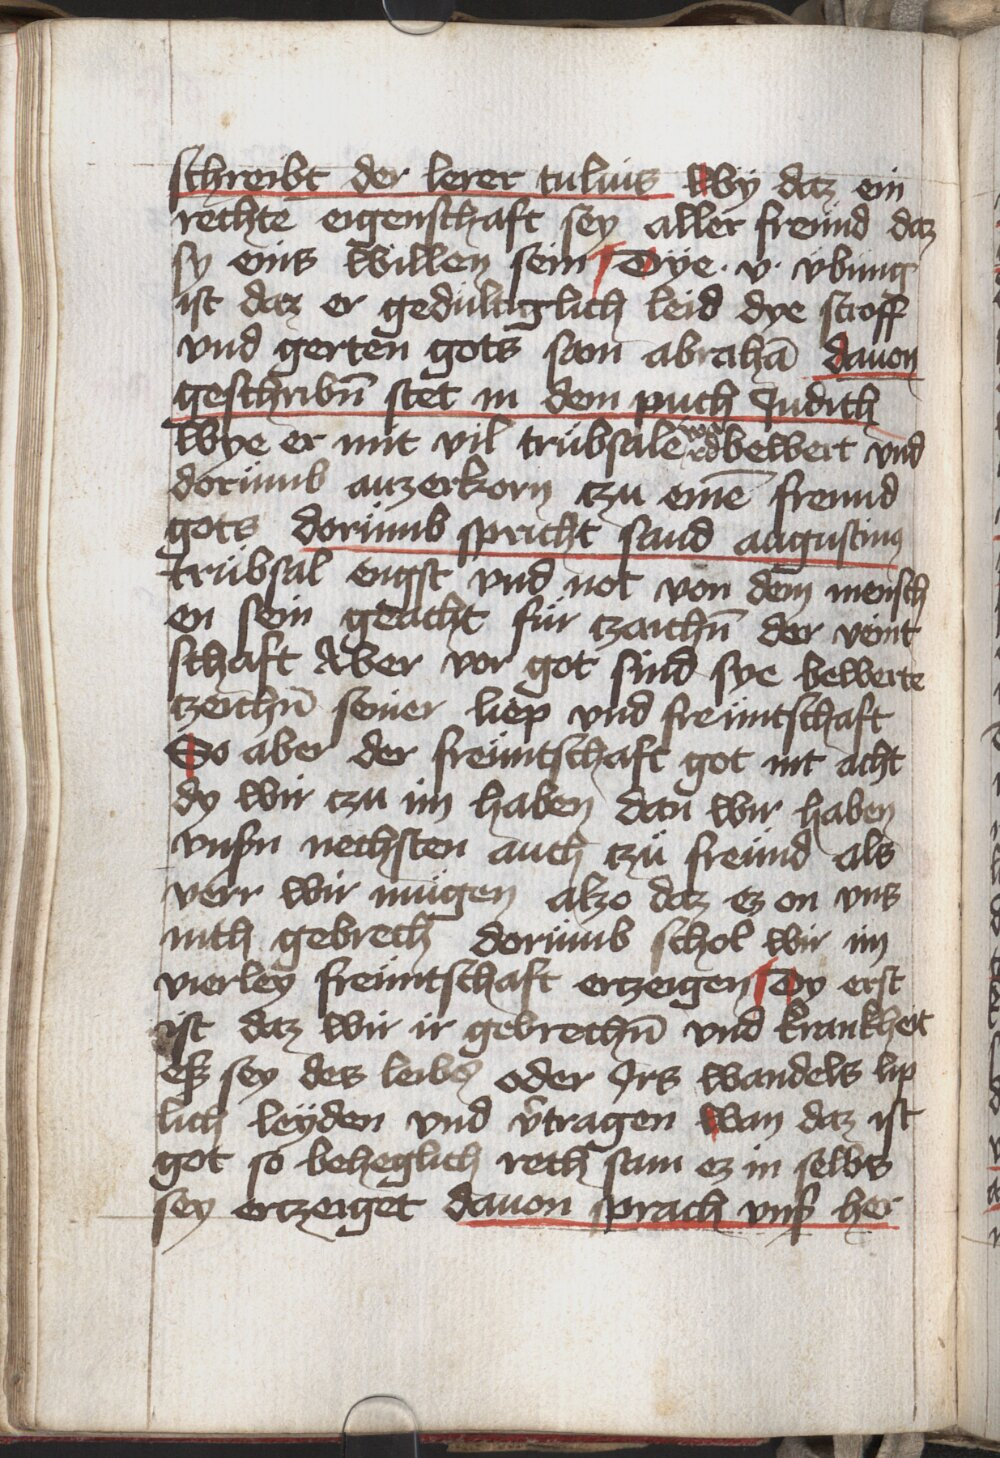 schreibt der lerer tulius Wy daz ein
rechte eigenschaft sey aller freünd daz
sy eins willen sein Dÿe · v · vbung
ist daz er gedultiglich leid dye stroff
vnd gerten gots sam abrahā dauon
geschribn̄ stet in dem puch Judith
Wye er mit vil trübsale word bewert vnd
dorümb auzerkorn czu einē freund
gots dorümb spricht sand augustinus
trübsal engst vnd not von dem mensch
en sein geacht für czaichn̄ der veint
schaft Aber vor got sind sye bewerte
czeichn̄ seiner liep vnd freüntschaft
So aber der freüntschaft got nit acht
dy wir czu im haben dan wir haben
vnsßn nechsten auch czü freünd als
verr wir mügen alzo daz ez on vns
nith gebrech dorümb schol wir im
vierley freüntschaft erczeigen Dy erst
ist daz wir ir gebrechn̄ vnd krankheit
eß sey des leibs oder Irs wandels lip
lich leÿden vnd v̄tragen wan daz ist
got so beheglich reth sam ez in selbs
sey erczeiget dauon sprach vnß her